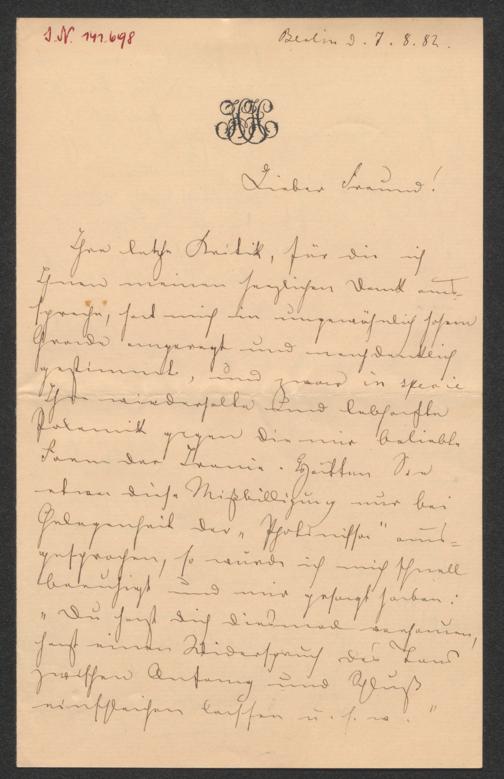 I.N. 141.698
Berlin d. 7. 8. 82.
Lieber Freund!
Ihre letzte Kritik, für die ich
Ihnen meinen herzlichen Dank aus-
spreche, hat mich in ungewöhnlich hohem
Grade angeregt und nachdenklich
gestimmt, und zwar in specie
Ihre wiederholte und lebhafte
Polemik gegen die mir beliebte
Form der Ironie. Hätten Sie
etwa diese Mißbilligung nur bei
Gelegenheit der „ " aus-
gesprochen, so würde ich mich schnell
beruhigt und mir gesagt haben:
„Du hast dich diesmal verhauen,
hast einen Widerspruch des Tons
zwischen Anfang und Schluß
einschleichen lassen u. s. w."